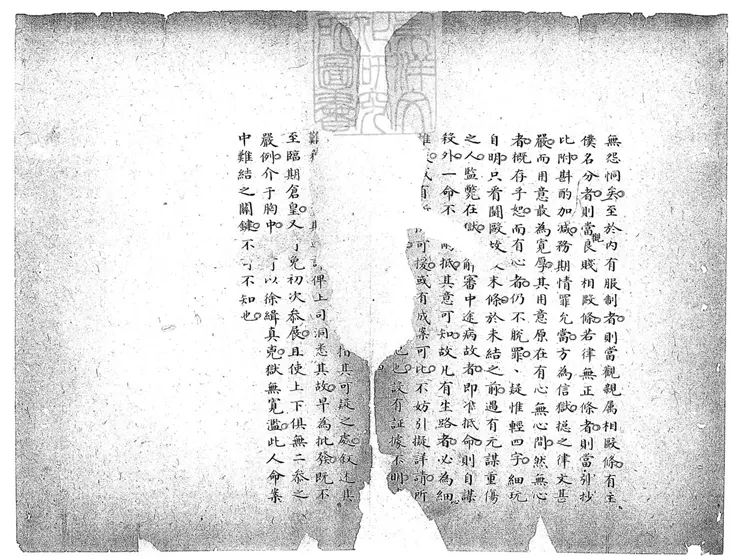 東洋文
化研究
所圖書
無怨恫矣至於內有服制者則當觀親属相毆條有主
僕名分者則當觀良賤相毆條若律無正條者則當引抄
比附斟酌加減務期情罪允當方為信獄搃之律文甚
嚴而用意㪚為寬厚其用意原在有心無心間然無心
者概存乎恕而有心者仍不脱罪、疑惟輕四字細玩
自明只看鬬毆故人末條於未結之前遇有元謀重傷
之人監斃在獄解審中途病故者即准抵命則自謀
殺外一命不兩抵其意可知故凡有生路者必為細
心
以有可援或有成案可比不妨引擬詳請所
也設有証據不明
指其可疑之處叙述其
難俾上司洞悉其故早為批發既不
至臨期倉皇又可免初次叅展且使上下俱無二叅之
嚴例介于胸中可以徐緝真兇獄無寃濫此人命案
中難結之關鍵不可不知也